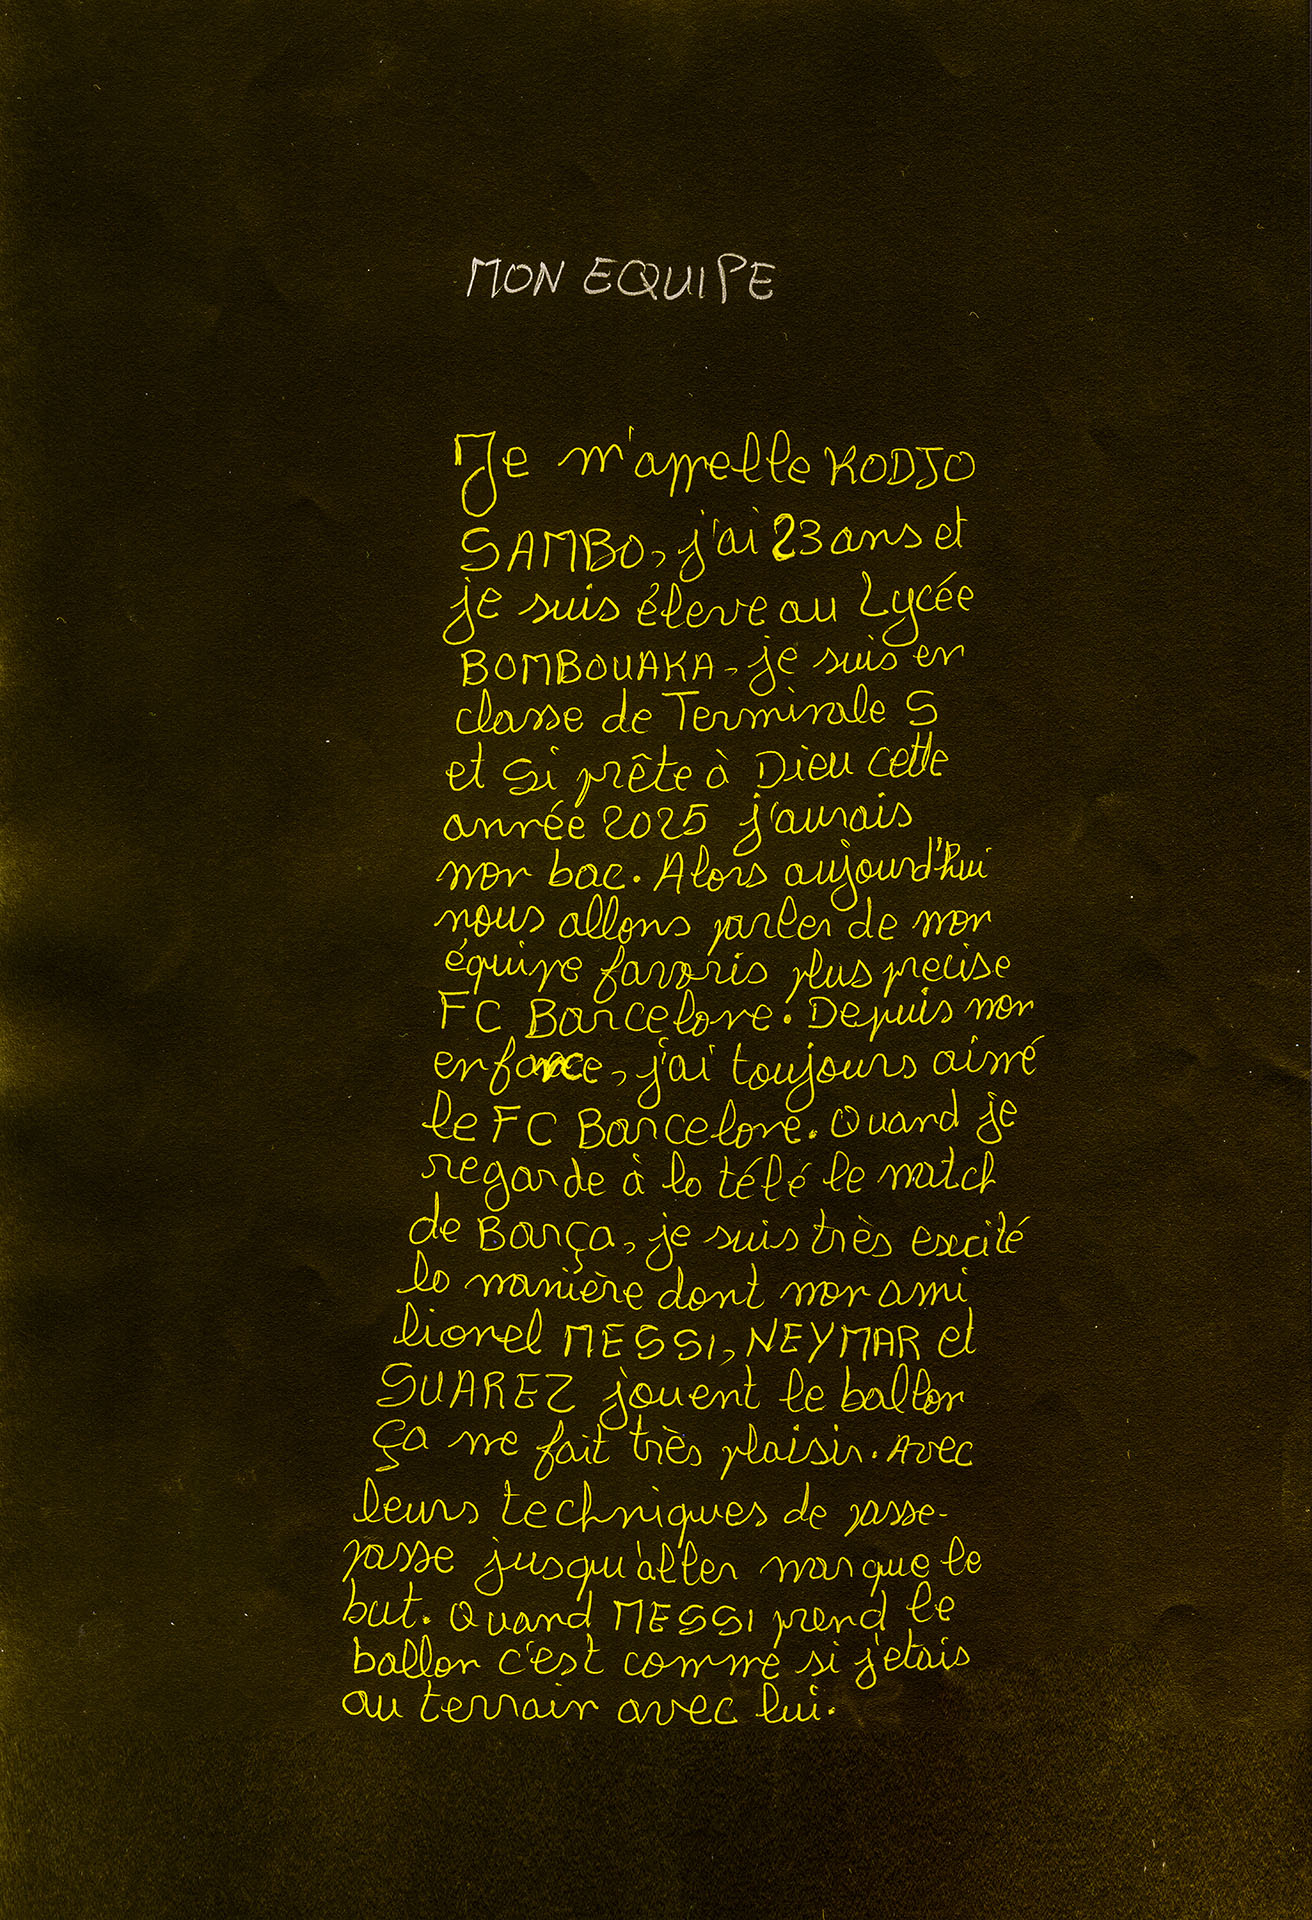 MON EQUIPE
Je m'appelle KODJO
SAMBO, j'ai 23 ans et
je suis éleve au Lycée
BOMBOUAKA, je suis en
classe de Terminale S
et si prête à Dieu cette
année 2025 j'aurais
mon bac. Alors aujourd'hui
nous allons parler de mon
équipe favoris plus precise
FC Barcelone. Depuis mon
enfance, j'ai toujours aimé
le FC Barcelone. Quand je
regarde à la télé le match
de Barça, je suis très excité
la manière dont mon ami
lionel MESSI, NEYMAR et
SUAREZ jouent le ballon
ça me fait très plaisir. Avec
leurs techniques de passe-
passe jusqu'aller marque le
but. Quand MESSI prend le
ballon c'est comme si j'etais
au terrain avec lui.